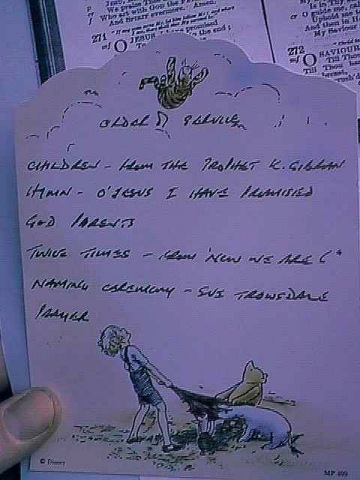 271
O JESUS I have promised
272
ORDER OF SERVICE
CHILDREN - FROM THE PROPHET K. GIBRAN
HYMN - O'JESUS I HAVE PROMISED
GOD PARENTS
TWICE TIMES - FROM 'NOW WE ARE 6"
NAMING CEREMONY - SUE TROWSDALE
PRAYER
© Disney